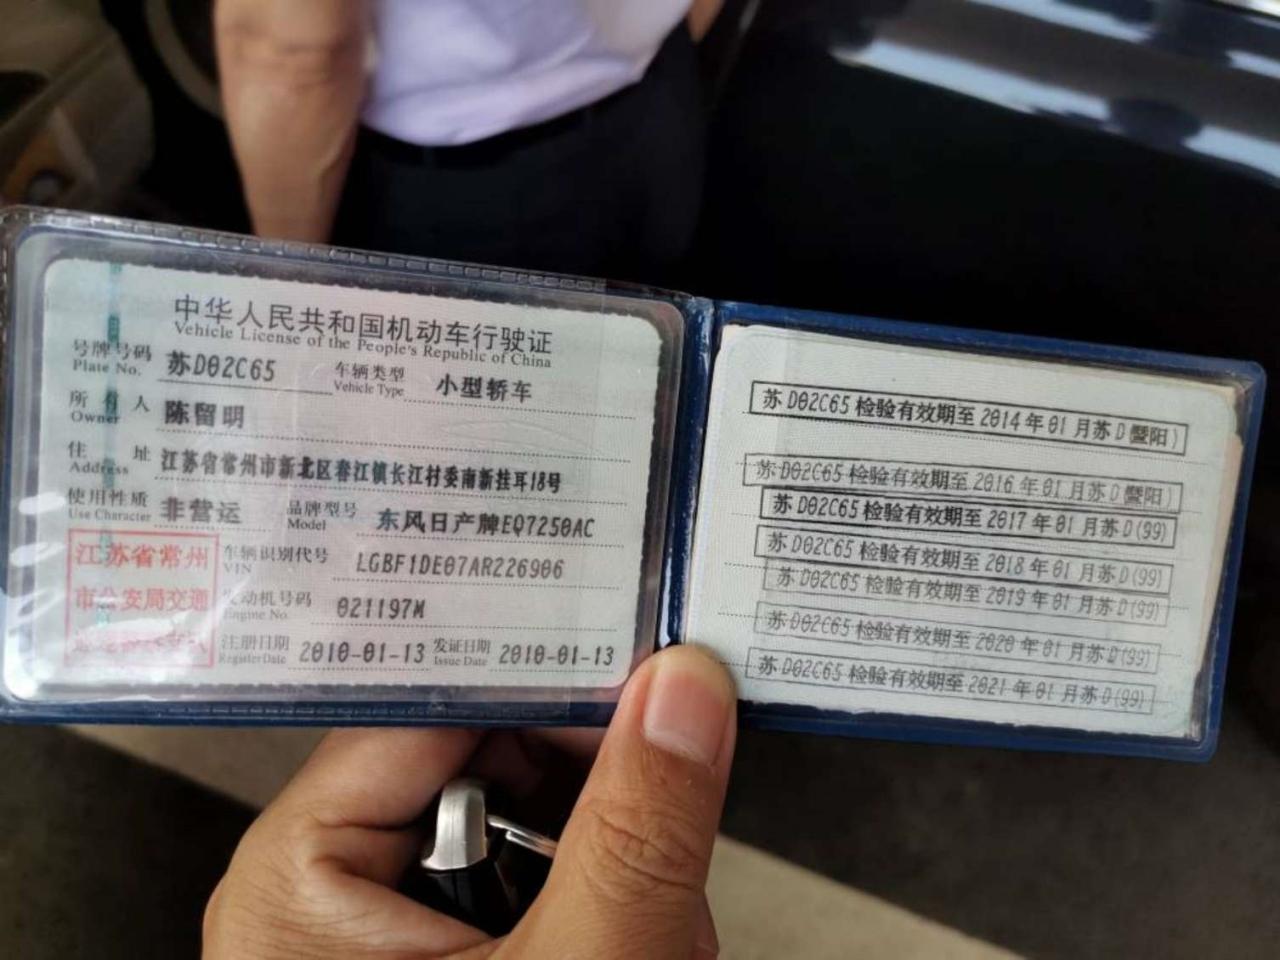 中华人民共和国机动车行驶证
Vehicle License of the People's Republic of China
号牌号码 苏D02C65 车辆类型 小型轿车
Plate No. Vehicle Type
所有人 陈留明
Owner
住址 江苏省常州市新北区春江镇长江村委南新挂耳18号
Address
使用性质 非营运 品牌型号 东风日产牌EQ7250AC
Use Character Model
江苏省常州
市公安局交通
车辆识别代号 LGBF1DE07AR226906
VIN
发动机号码 021197M
Engine No.
注册日期 2010-01-13 发证日期 2010-01-13
Register Date Issue Date
苏D02C65 检验有效期至 2014年01月苏D(暨阳)
苏D02C65 检验有效期至 2016年01月苏D(暨阳)
苏D02C65 检验有效期至 2017年01月苏D(99)
苏D02C65 检验有效期至 2018年01月苏D(99)
苏D02C65 检验有效期至 2019年01月苏D(99)
苏D02C65 检验有效期至 2020年01月苏D(99)
苏D02C65 检验有效期至 2021年01月苏D(99)